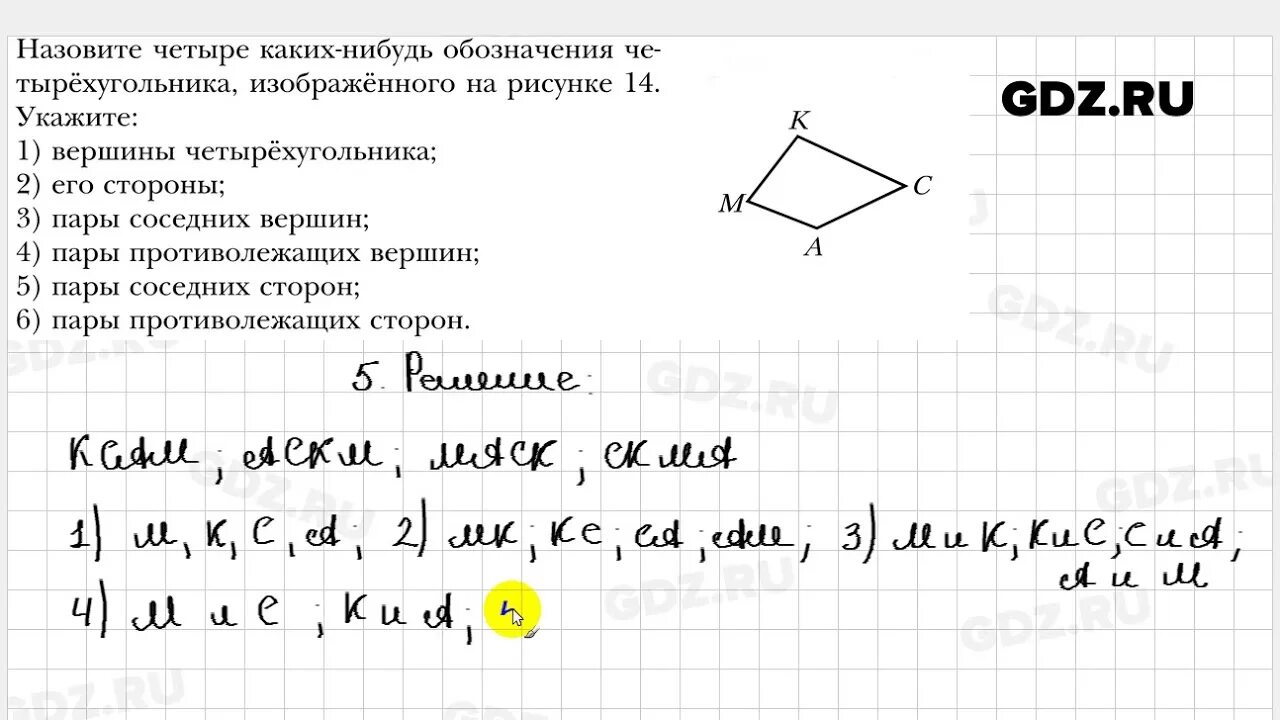 Назовите четыре каких-нибудь обозначения че-
тырёхугольника, изображённого на рисунке 14.
Укажите:
1) вершины четырёхугольника;
2) его стороны;
3) пары соседних вершин;
4) пары противолежащих вершин;
5) пары соседних сторон;
6) пары противолежащих сторон.
GDZ.RU
K
C
M
A
5. Решение:
КСАМ; АСКМ; МАСК; СКМА
1) М, К, С, А; 2) МК; КС; СА; АМ; 3) М и К; К и С; С и А;
А и М
4) М и С; К и А;
GDZ.RU
GDZ.RU
GDZ.RU
GDZ.RU
GDZ.RU
GDZ.RU
GDZ.RU
GDZ.RU
GDZ.RU